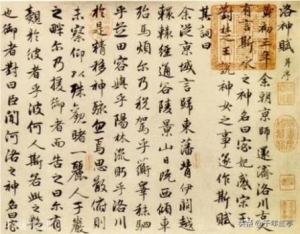 洛神賦 并序
黃初三年余朝京師還濟洛川古人
有言斯水之神名曰宓妃感宋玉
對楚王說神女之事遂作斯賦
其詞曰
余從京域言歸東藩背伊闕越
轘轅經通谷陵景山日既西傾車
殆馬煩尔乃税駕乎蘅皋秣駟
乎芝田容與乎陽林流眄乎洛川
於是精移神駭忽焉思散俯則
未察仰以殊觀睹一麗人于巖
之畔尔乃援御者而告之曰尔有
覿於彼者乎彼何人斯若此之豔
也御者對曰臣聞河洛之神名曰宓